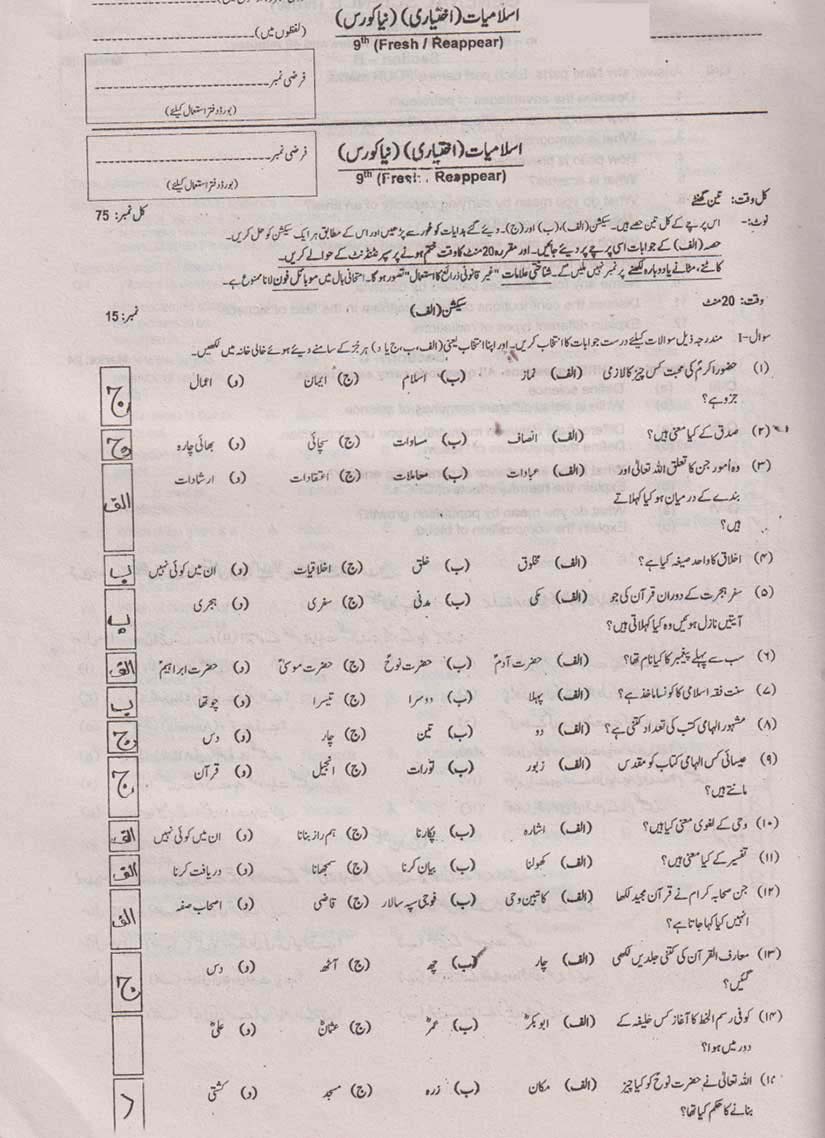 اسلامیات (اختیاری) (نیا کورس)
(لفظوں میں)
9th (Fresh / Reappear)
فرضی نمبر
(بورڈ دفتر استعمال کیلئے)
اسلامیات (اختیاری) (نیا کورس)
فرضی نمبر
9th (Fresh Reappear)
(بورڈ دفتر استعمال کیلئے)
کل وقت: تین گھنٹے
کل نمبر: 75
نوٹ:- اس پرچے کے کل تین حصے ہیں۔ سیکشن (الف)، (ب) اور (ج)۔ دیئے گئے ہدایات کو غور سے پڑھیں اور اس کے مطابق ہر ایک سیکشن کو حل کریں۔
حصہ (الف) کے جوابات اسی پرچے پر دیئے جائیں۔ اور مقررہ 20 منٹ کا وقت ختم ہونے پر سپرنٹنڈنٹ کے حوالے کریں۔
کاٹنے، مٹانے یا دوبارہ لکھنے پر نمبر نہیں ملیں گے۔ شناختی علامات "غیر قانونی ذرائع کا استعمال" تصور ہوگا۔ امتحانی ہال میں موبائل فون لانا ممنوع ہے۔
وقت: 20 منٹ
سیکشن (الف)
نمبر: 15
سوال-I مندرجہ ذیل سوالات کیلئے درست جوابات کا انتخاب کریں۔ اور اپنا انتخاب یعنی (الف، ب، ج یا د) ہر جُز کے سامنے دیئے ہوئے خالی خانہ میں لکھیں۔
(۱) حضور اکرمؐ کی محبت کس چیز کا لازمی (الف) نماز (ب) اسلام (ج) ایمان (د) اعمال ج
جزو ہے؟
(۲) صدق کے کیا معنی ہیں؟ (الف) انصاف (ب) مساوات (ج) سچائی (د) بھائی چارہ ج
(۳) وہ اُمور جن کا تعلق اللہ تعالیٰ اور (الف) عبادات (ب) معاملات (ج) اعتقادات (د) ارشادات الف
بندے کے درمیان ہو کیا کہلاتے
ہیں؟
(۴) اخلاق کا واحد صیغہ کیا ہے؟ (الف) مخلوق (ب) خلق (ج) اخلاقیات (د) ان میں کوئی نہیں ب
(۵) سفر ہجرت کے دوران قرآن کی جو (الف) مکی (ب) مدنی (ج) سفری (د) ہجری ب
آیتیں نازل ہوئیں وہ کیا کہلاتی ہیں؟
(۶) سب سے پہلے پیغمبر کا کیا نام تھا؟ (الف) حضرت آدمؑ (ب) حضرت نوحؑ (ج) حضرت موسیٰؑ (د) حضرت ابراہیمؑ الف
(۷) سنت فقہ اسلامی کا کونسا ماخذ ہے؟ (الف) پہلا (ب) دوسرا (ج) تیسرا (د) چوتھا ب
(۸) مشہور الہامی کتب کی تعداد کتنی ہے؟ (الف) دو (ب) تین (ج) چار (د) دس ج
(۹) عیسائی کس الہامی کتاب کو مقدس (الف) زبور (ب) تورات (ج) انجیل (د) قرآن ج
مانتے ہیں؟
(۱۰) وحی کے لغوی معنی کیا ہیں؟ (الف) اشارہ (ب) پکارنا (ج) ہم راز بنانا (د) ان میں کوئی نہیں الف
(۱۱) تفسیر کے کیا معنی ہیں؟ (الف) کھولنا (ب) بیان کرنا (ج) سمجھانا (د) دریافت کرنا الف
(۱۲) جن صحابہ کرام نے قرآن مجید لکھا (الف) کاتبین وحی (ب) فوجی سپہ سالار (ج) قاضی (د) اصحاب صفہ الف
انہیں کیا کہا جاتا ہے؟
(۱۳) معارف القرآن کی کتنی جلدیں لکھی (الف) چار (ب) چھ (ج) آٹھ (د) دس ج
گئیں؟
(۱۴) کوفی رسم الخط کا آغاز کس خلیفہ کے (الف) ابوبکرؓ (ب) عمرؓ (ج) عثمانؓ (د) علیؓ
دور میں ہوا؟
اللہ تعالیٰ نے حضرت نوحؑ کو کیا چیز (الف) مکان (ب) زرہ (ج) مسجد (د) کشتی د
بنانے کا حکم کیا تھا؟